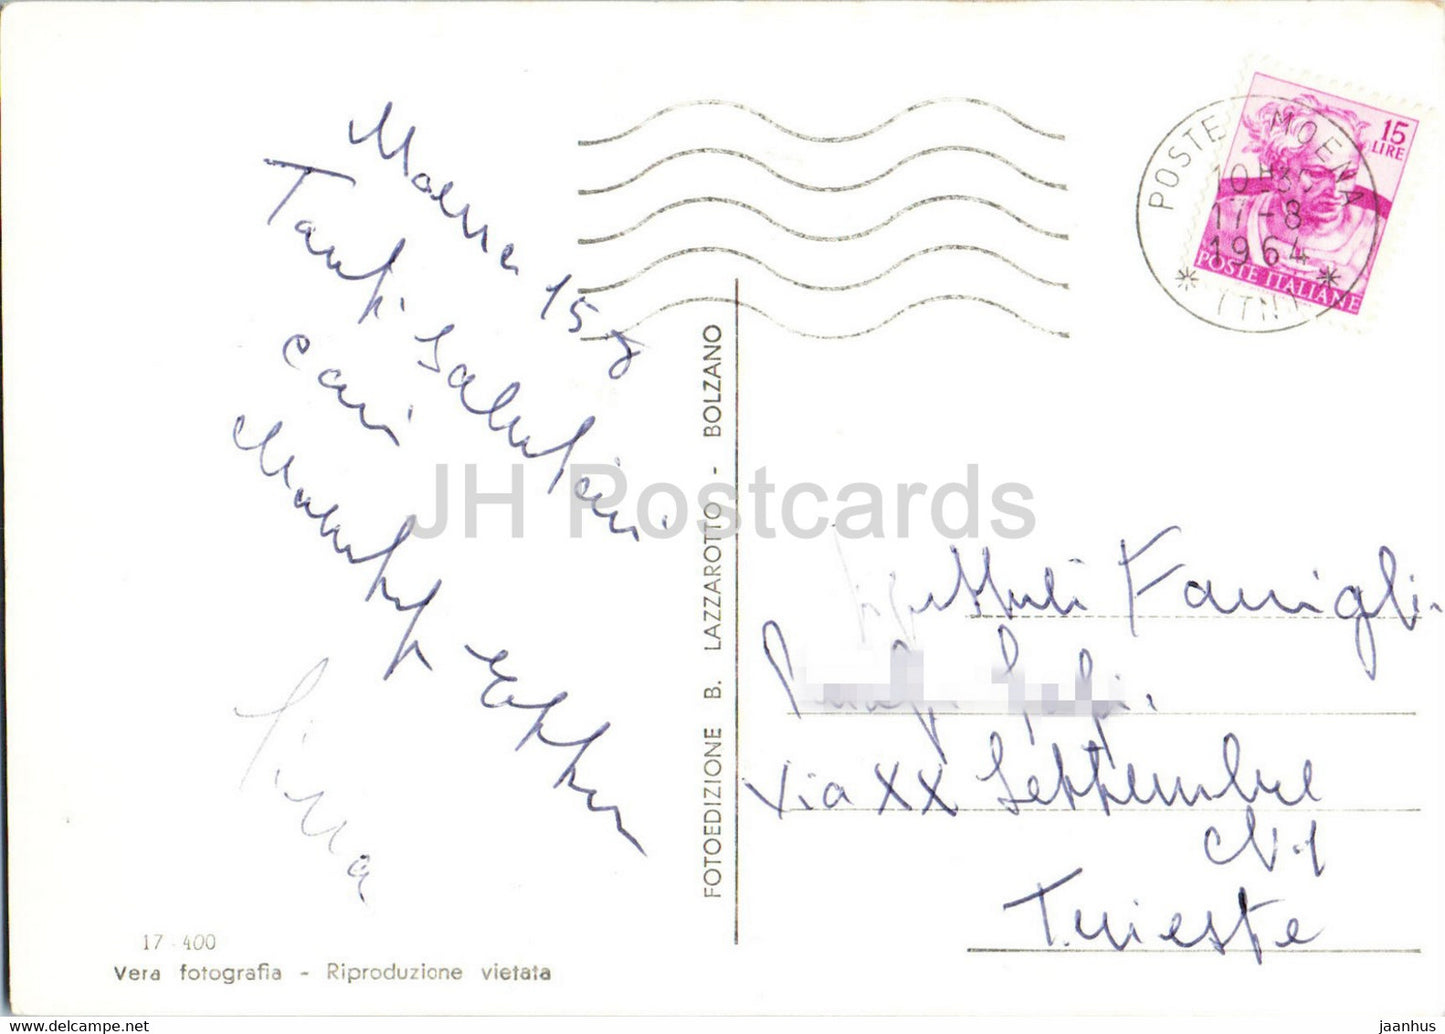 Moena 15-8
Tanti saluti
cari
Sina
17-400
Vera fotografia - Riproduzione vietata
FOTOEDIZIONE B. LAZZAROTTO - BOLZANO
POSTE MOENA
10H35
17-8
1964
* (TN) *
15
LIRE
POSTE ITALIANE
Famigli
Via XX Settembre
N 1
Trieste
JH Postcards
jaanhus © www.delcampe.net